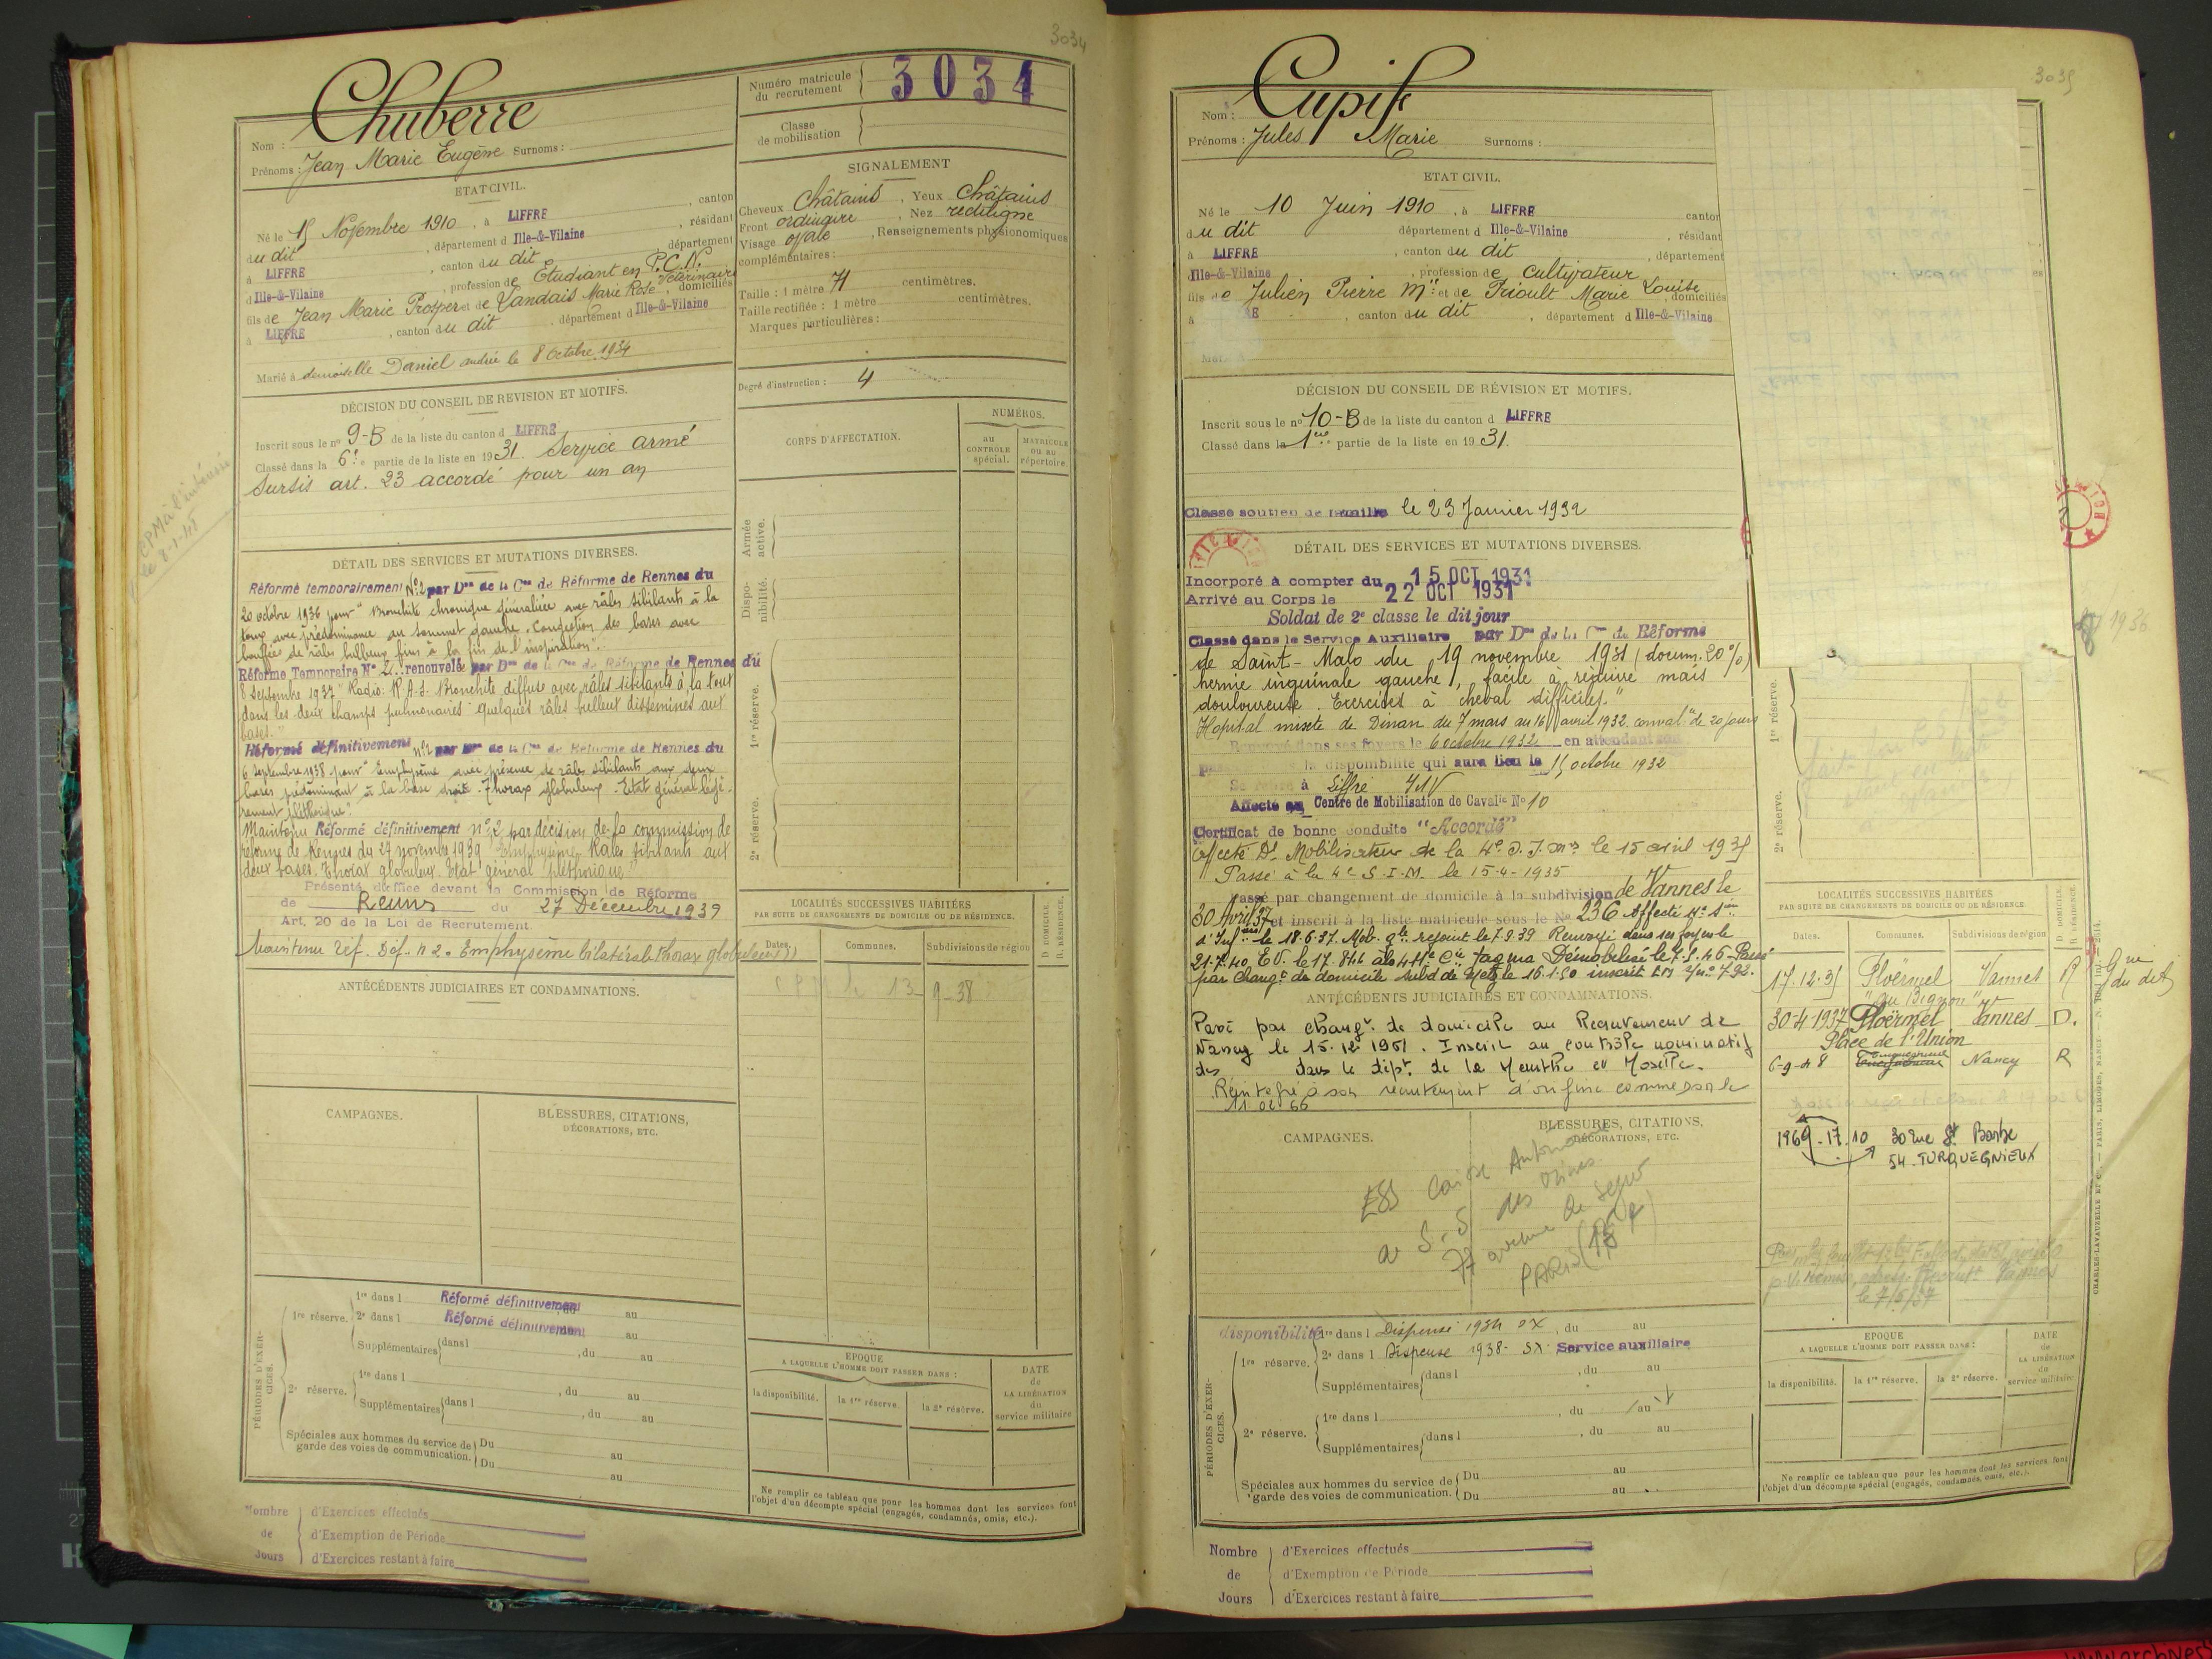 3034
Nom : Chuberre
Prénoms : Jean Marie Eugène Surnoms :
Numéro matricule du recrutement 3034
Classe de mobilisation
ETAT CIVIL.
Né le 15 Novembre 1910, à LIFFRE, canton
du dit, département d Ille-&-Vilaine, résidant
à LIFFRE, canton du dit, département
d Ille-&-Vilaine, profession de Etudiant en P.C.N. Vétérinaire
fils de Jean Marie Prosper et de Landais Marie Rose, domiciliés
à LIFFRE, canton du dit, département d Ille-&-Vilaine
Marié à demoiselle Daniel andrée le 8 Octobre 1934
SIGNALEMENT
Cheveux Châtains, Yeux Châtains
Front ordinaire, Nez rectiligne
Visage ovale, Renseignements physionomiques
complémentaires :
Taille : 1 mètre 71 centimètres.
Taille rectifiée : 1 mètre centimètres.
Marques particulières :
Degré d'instruction : 4
DÉCISION DU CONSEIL DE REVISION ET MOTIFS.
Inscrit sous le no 9-B de la liste du canton d LIFFRE
Classé dans la 6e partie de la liste en 1931. Service armé
Sursis art. 23 accordé pour un an
CPM à l'intéressé
le 8-1-45
DÉTAIL DES SERVICES ET MUTATIONS DIVERSES.
Réformé temporairement No 2 par Don de la Con de Réforme de Rennes du
20 octobre 1936 pour "Bronchite chronique généralisée avec râles sibilants à la
toux avec prédominance au sommet gauche. Congestion des bases avec
bouffées de râles bulleux fins à la fin de l'inspiration".
Réforme Temporaire No 2 renouvelée par Don de la Con de Réforme de Rennes du
8 Septembre 1937 "Radio: R.A.S. Bronchite diffuse avec râles sibilants à la toux
dans les deux champs pulmonaires quelques râles bulleux disséminés aux
bases."
Réformé définitivement no 2 par Don de la Con de Réforme de Rennes du
6 septembre 1938 pour "Emphysème avec présence de râles sibilants aux deux
bases prédominant à la base droite. Thorax globuleux. Etat général légè-
rement pléthorique".
Maintenu Réformé définitivement no 2 par décision de la commission de
réforme de Rennes du 27 novembre 1939 "Emphysème Rales sibilants aux
deux bases. Thorax globuleux. Etat général pléthorique"
Présenté d'office devant la Commission de Réforme
de Rennes du 27 Décembre 1939
Art. 20 de la Loi de Recrutement.
Maintenu réf. Déf. n 2. Emphysème bilatéral thorax globuleux
ANTÉCÉDENTS JUDICIAIRES ET CONDAMNATIONS.
CPM le 13-9-38
CAMPAGNES.
BLESSURES, CITATIONS, DÉCORATIONS, ETC.
CORPS D'AFFECTATION.
NUMÉROS.
au CONTROLE spécial.
MATRICULE ou au répertoire.
Armée active.
Disponibilité.
1re réserve.
2e réserve.
LOCALITÉS SUCCESSIVES HABITÉES
PAR SUITE DE CHANGEMENTS DE DOMICILE OU DE RÉSIDENCE.
Dates. Communes. Subdivisions de région
D. DOMICILE. R. RÉSIDENCE.
PÉRIODES D'EXERCICES.
1re réserve.
1re dans l Réformé définitivement, du au
2e dans l Réformé définitivement au
Supplémentaires dans l, du au
2e réserve.
1re dans l, du au
Supplémentaires dans l, du au
Spéciales aux hommes du service de garde des voies de communication. Du au
Du au
EPOQUE
A LAQUELLE L'HOMME DOIT PASSER DANS :
la disponibilité. la 1re réserve. la 2e réserve.
DATE de LA LIBÉRATION du service militaire
Ne remplir ce tableau que pour les hommes dont les services font
l'objet d'un décompte spécial (engagés, condamnés, omis, etc.).
Nombre de Jours
d'Exercices effectués
d'Exemption de Période
d'Exercices restant à faire
3035
Nom : Cupif
Prénoms : Jules Marie Surnoms :
ETAT CIVIL.
Né le 10 Juin 1910, à LIFFRE canton
du dit département d Ille-&-Vilaine, résidant
à LIFFRE, canton du dit, département
d Ille-&-Vilaine, profession de Cultivateur
fils de Julien Pierre Mie et de Frioult Marie Louise, domiciliés
à RE, canton du dit, département d Ille-&-Vilaine
DÉCISION DU CONSEIL DE RÉVISION ET MOTIFS.
Inscrit sous le no 10-B de la liste du canton d LIFFRE
Classé dans la 1ère partie de la liste en 1931.
Classé soutien de famille le 23 Janvier 1932
DÉTAIL DES SERVICES ET MUTATIONS DIVERSES.
Incorporé à compter du 15 OCT 1931
Arrivé au Corps le 22 OCT 1931
Soldat de 2e classe le dit jour
Classé dans le Service Auxiliaire par Don de la Con de Réforme
de Saint-Malo du 19 novembre 1931 (docum. 20%)
hernie inguinale gauche, facile à réduire mais
douloureuse. Exercices à cheval difficiles."
Hopital mixte de Dinan du 7 mars au 16 avril 1932. conval. de 20 jours
Renvoyé dans ses foyers le 6 octobre 1932 en attendant son
la disponibilité qui aura lieu le 15 octobre 1932
Se retire à Liffré I&V
Affecté au Centre de Mobilisation de Cavalie No 10
Certificat de bonne conduite "Accordé"
Affecté Dt Mobilisateur de la 4e S.I.M. le 15 avril 1935
Passé à la 4e S.I.M. le 15-4-1935
Passé par changement de domicile à la subdivision de Vannes le
30 Avril 37 et inscrit à la liste matricule sous le No 236 Affecté 4e Son
d'Infies le 18.6.37. Mob. gle rejoint le 7.9.39 Renvoyé dans ses foyers le
21.7.40 Démobilisé le Passé
par changt de domicile subd de Metz le 16.1.50 inscrit
ANTÉCÉDENTS JUDICIAIRES ET CONDAMNATIONS.
Passé par changt de domicile au Recrutement de
Nancy le 15.12.1951. Inscrit au contrôle nominatif
des dans le dépt. de la Meurthe et Moselle.
Réintégré à son recrutement d'origine comme par le
11 02 66
CAMPAGNES.
BLESSURES, CITATIONS, DÉCORATIONS, ETC.
ESS Caisse Autonome
de S.S des Mines
77 avenue de Ségur
PARIS (15e)
1936
1re réserve.
2e réserve.
LOCALITÉS SUCCESSIVES HABITÉES
PAR SUITE DE CHANGEMENTS DE DOMICILE OU DE RÉSIDENCE.
Dates. Communes. Subdivisions de région
D. DOMICILE. R. RÉSIDENCE.
17.12.35 Ploërmel Vannes R
"au Bignon"
30-4-1937 Ploërmel Vannes D.
Place de l'Union
6-9-48 Nancy R
1969-17.10 30 rue St Barbe
54. TURQUEGNIEUX
le 7/5/37
CHARLES-LAVAUZELLE ET Cie. — PARIS, LIMOGES, NANCY
PÉRIODES D'EXERCICES.
disponibilité 1re dans l Dispensé 1934 SX, du au
1re réserve. 2e dans l Dispensé 1938- SX Service auxiliaire
Supplémentaires dans l, du au
2e réserve.
1re dans l, du au
Supplémentaires dans l, du au
Spéciales aux hommes du service de garde des voies de communication. Du au
Du au
EPOQUE
A LAQUELLE L'HOMME DOIT PASSER DANS :
la disponibilité. la 1re réserve. la 2e réserve.
DATE de LA LIBÉRATION du service militaire
Ne remplir ce tableau que pour les hommes dont les services font
l'objet d'un décompte spécial (engagés, condamnés, omis, etc.).
Nombre de Jours
d'Exercices effectués
d'Exemption de Période
d'Exercices restant à faire